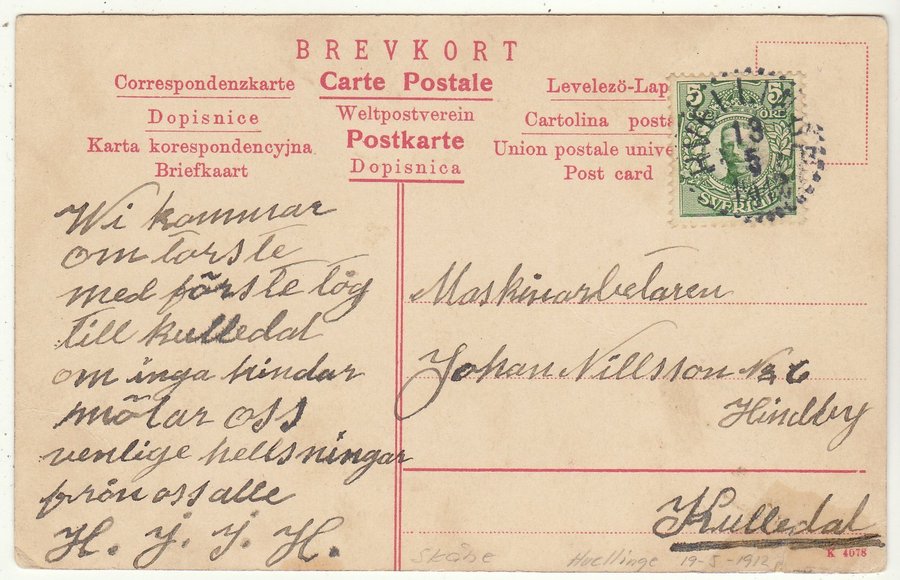 BREVKORT
Correspondenzkarte
Carte Postale
Levelezö-Lap
Dopisnice
Weltpostverein
Cartolina posta
Karta korespondencyjna
Postkarte
Union postale unive
Briefkaart
Dopisnica
Post card
5 5
ÖRE
SVERIGE
13
5
Wi kommar
om torste
med förste tög
till Kulledal
om inga hindar
mötar oss
venlige hellsningar
från oss alle
H. J. J. H.
Maskinarbetaren
Johan Nillsson No 6
Hindby
Kulledal
K 4078
Skåne
Hvellinge 19-5-1912